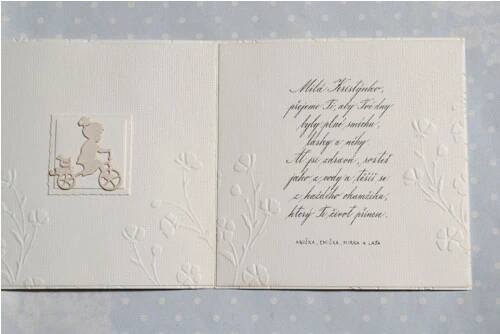 Milá Kristýnko,
přejeme Ti, aby Tvé dny
byly plné smíchu,
lásky a něhy.
Ať jsi zdravá, rosteš
jako z vody a těšíš se
z každého okamžiku,
který Ti život přinese.
ANIČKA, EMIČKA, MIRKA A LÁĎA